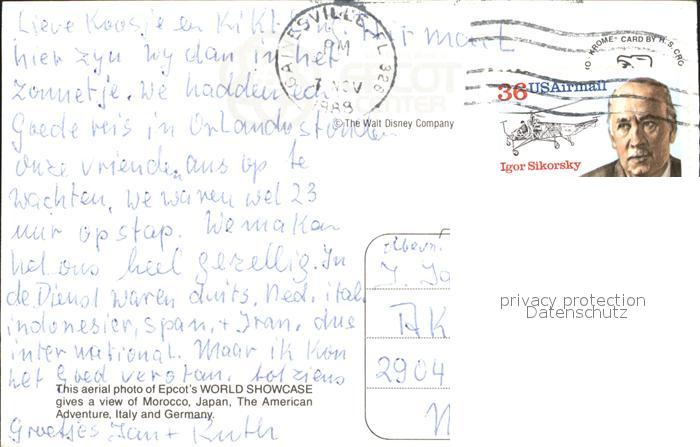 Lieve Koosje en
hier zyn wy dan in het
zonnetje. We hadden een
Goede reis in Orlando stonden
onze vrienden ons op te
wachten, we waren wel 23
uur op stap. We maken
het ons heel gezellig. In
de Dienst waren duits, Ned, ital,
indonesier, span, + Iran, dus
international. Maar ik kon
het Goed verstaan. tot ziens
Groetjes Jan + Ruth
air mail
GAINESVILLE FL 326
PM
7 NOV
1989
EPCOT
CENTER
© The Walt Disney Company
KROME CARD BY H.S. CRO
36 USAirmail
Igor Sikorsky
J. Ja
AK
2904
privacy protection
Datenschutz
This aerial photo of Epcot's WORLD SHOWCASE
gives a view of Morocco, Japan, The American
Adventure, Italy and Germany.